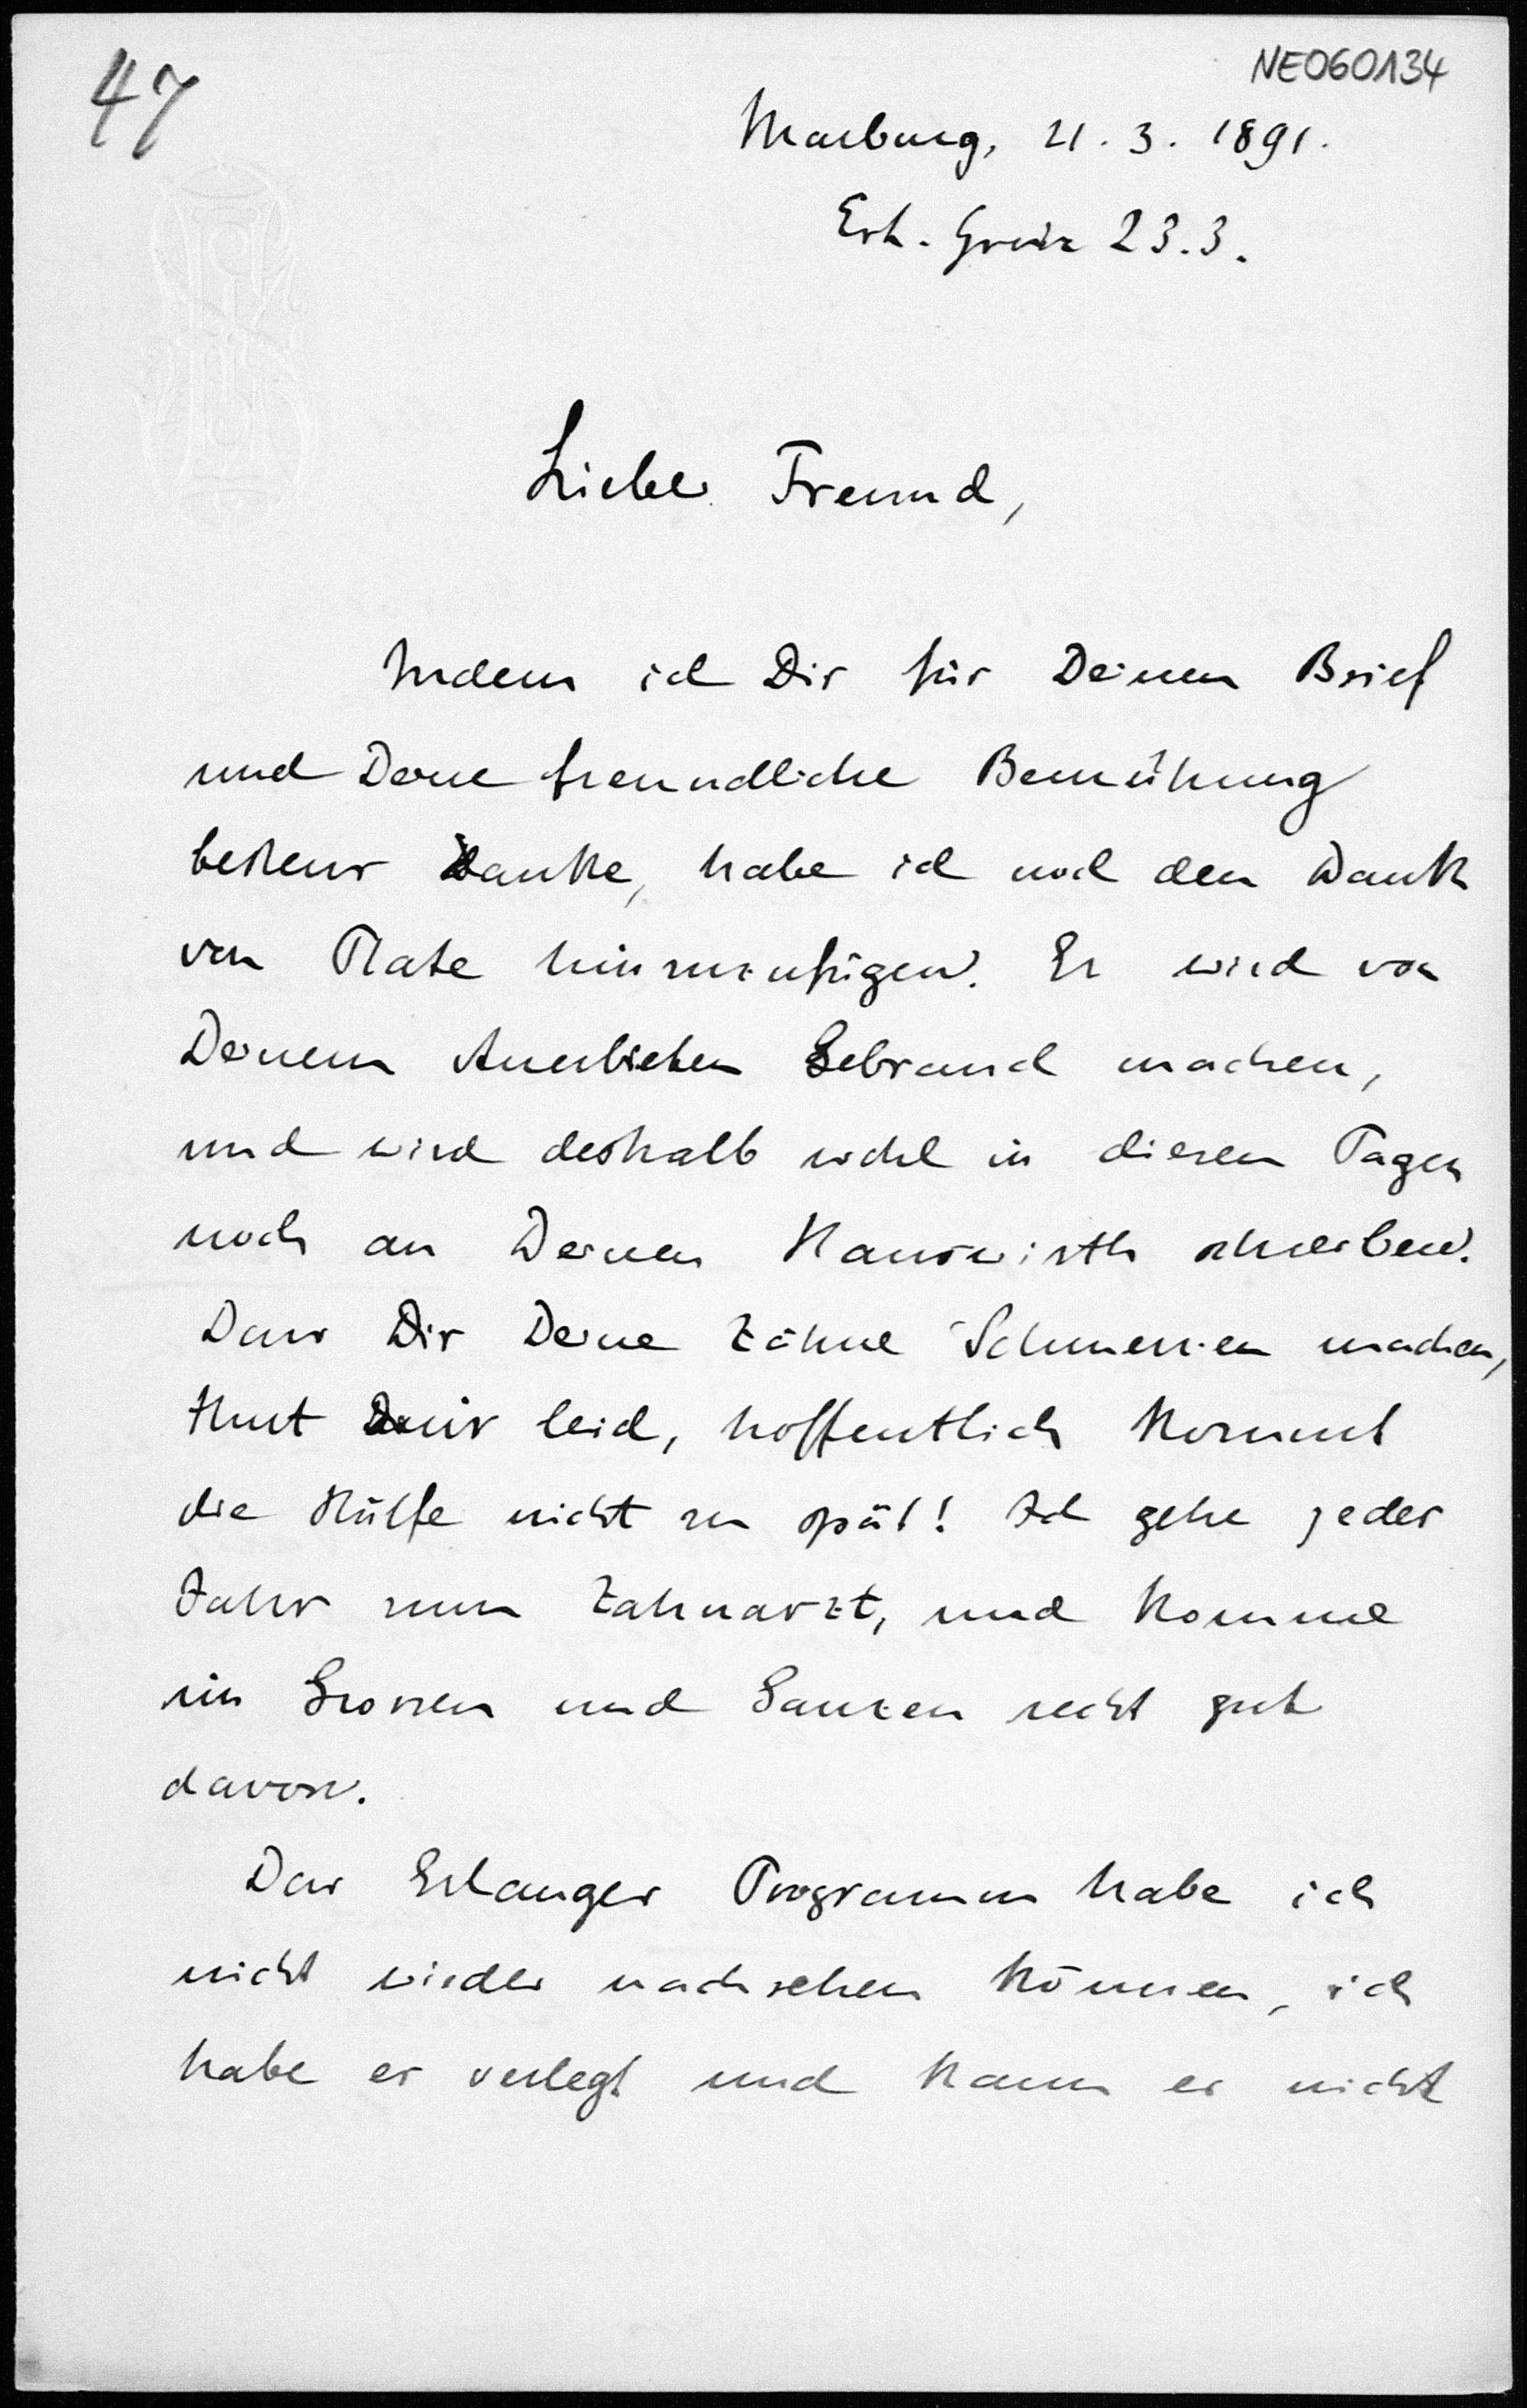 47
NE060134
Marburg, 21. 3. 1891.
Erh. Greiz 23.3.
Lieber Freund,
Indem ich Dir für Deinen Brief
und Deine freundliche Bemühung
bestens danke, habe ich noch den Dank
von Plate hinzuzufügen. Er wird von
Deinem Anerbieten Gebrauch machen,
und wird deshalb wohl in diesen Tagen
noch an Deinen Hauswirth schreiben.
Dass Dir Deine Zähne Schmerzen machen,
thut mir leid, hoffentlich kommt
die Hülfe nicht zu spät! Ich gehe jedes
Jahr zum Zahnarzt, und komme
im Grossen und Ganzen recht gut
davon.
Das Erlanger Programm habe ich
nicht wieder nachsehen können, ich
habe es verlegt und kann es nicht